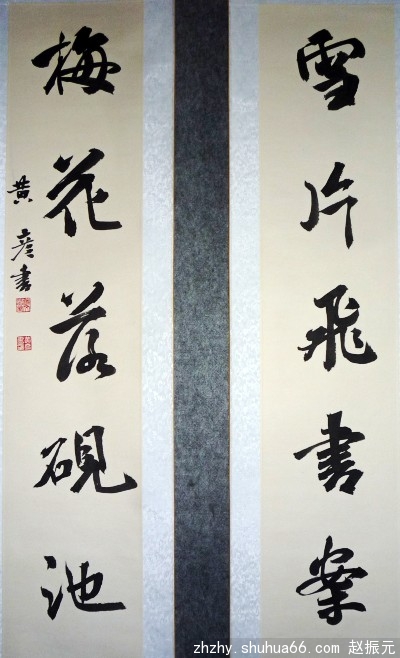 雪片飛書案
梅花落硯池
黄彦書
zhzhy.shuhua66.com 赵振元